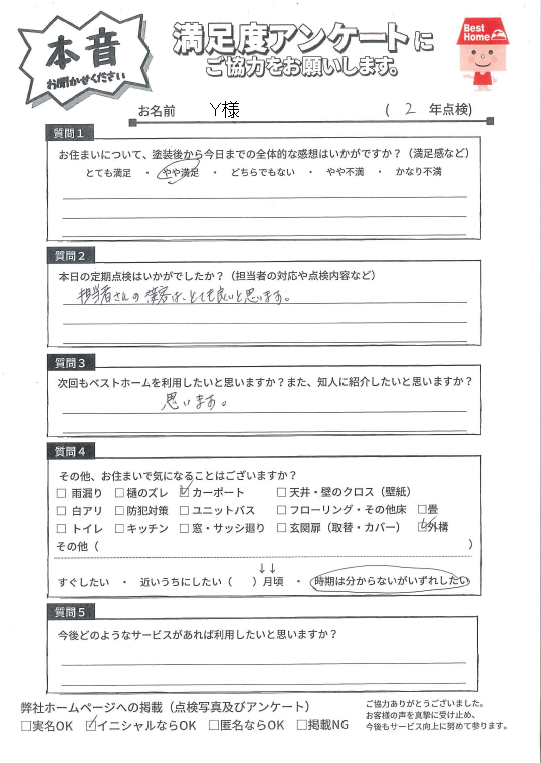 本音
お聞かせください
満足度アンケートに
ご協力をお願いします。
Best
Home
お名前 Y様 ( 2 年点検)
質問1
お住まいについて、塗装後から今日までの全体的な感想はいかがですか？（満足感など）
とても満足 ・ やや満足 ・ どちらでもない ・ やや不満 ・ かなり不満
質問2
本日の定期点検はいかがでしたか？（担当者の対応や点検内容など）
担当者さんの 接客は、とても良いと思います。
質問3
次回もベストホームを利用したいと思いますか？また、知人に紹介したいと思いますか？
思います。
質問4
その他、お住まいで気になることはございますか？
□ 雨漏り □ 樋のズレ ☑ カーポート □ 天井・壁のクロス（壁紙）
□ 白アリ □ 防犯対策 □ ユニットバス □ フローリング・その他床 □畳
□ トイレ □ キッチン □ 窓・サッシ廻り □ 玄関扉（取替・カバー） ☑外構
その他（ ）
↓↓
すぐしたい ・ 近いうちにしたい（ ）月頃 ・ 時期は分からないがいずれしたい
質問5
今後どのようなサービスがあれば利用したいと思いますか？
弊社ホームページへの掲載（点検写真及びアンケート）
□実名OK ☑イニシャルならOK □匿名ならOK □掲載NG
ご協力ありがとうございました。
お客様の声を真摯に受け止め、
今後もサービス向上に努めて参ります。